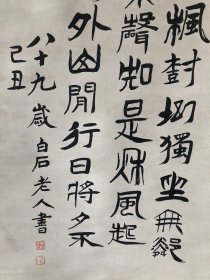 楓樹坳獨坐無鄰
聲知是秌風起
外閒行日將夕不
八十九歲白石老人書
己丑